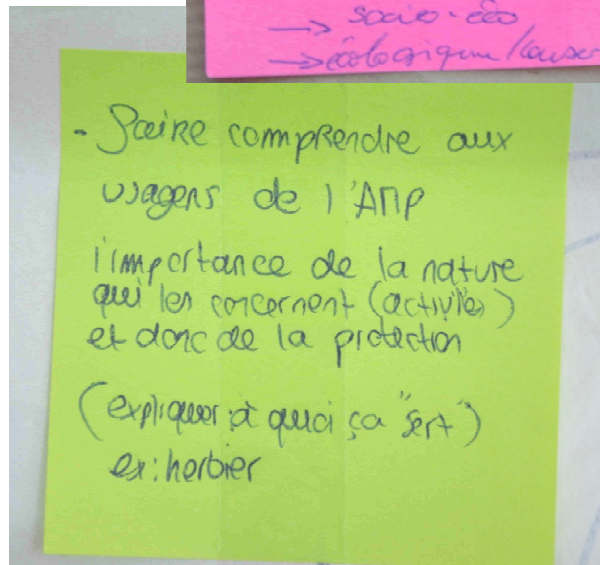 → socio-éco
→ écologique /
- Faire comprendre aux
usagers de l'AMP
l'importance de la nature
qui les concernent (activités)
et donc de la protection
(expliquer à quoi ça "sert")
ex: herbier